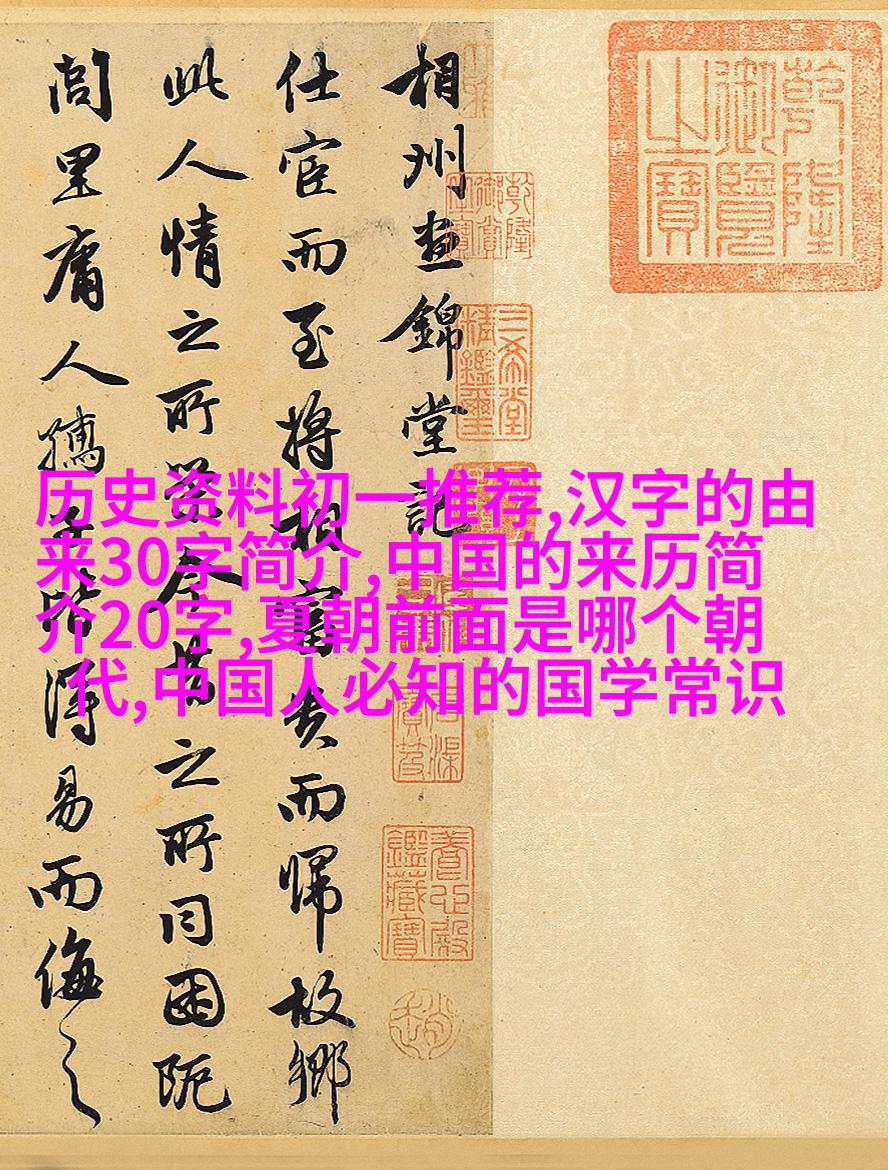 乾隆御覽之寶
相州晝錦堂記
仕宦而至將相富貴而歸故鄉
此人情之所榮今昔之所同困阨
閭里庸人孺子皆得易而侮之
三希堂精鑑璽
石渠寶笈
養心殿鑑藏寶
历史资料初一推荐,汉字的由
来30字简介,中国的来历简
介20字,夏朝前面是哪个朝
代,中国人必知的国学常识